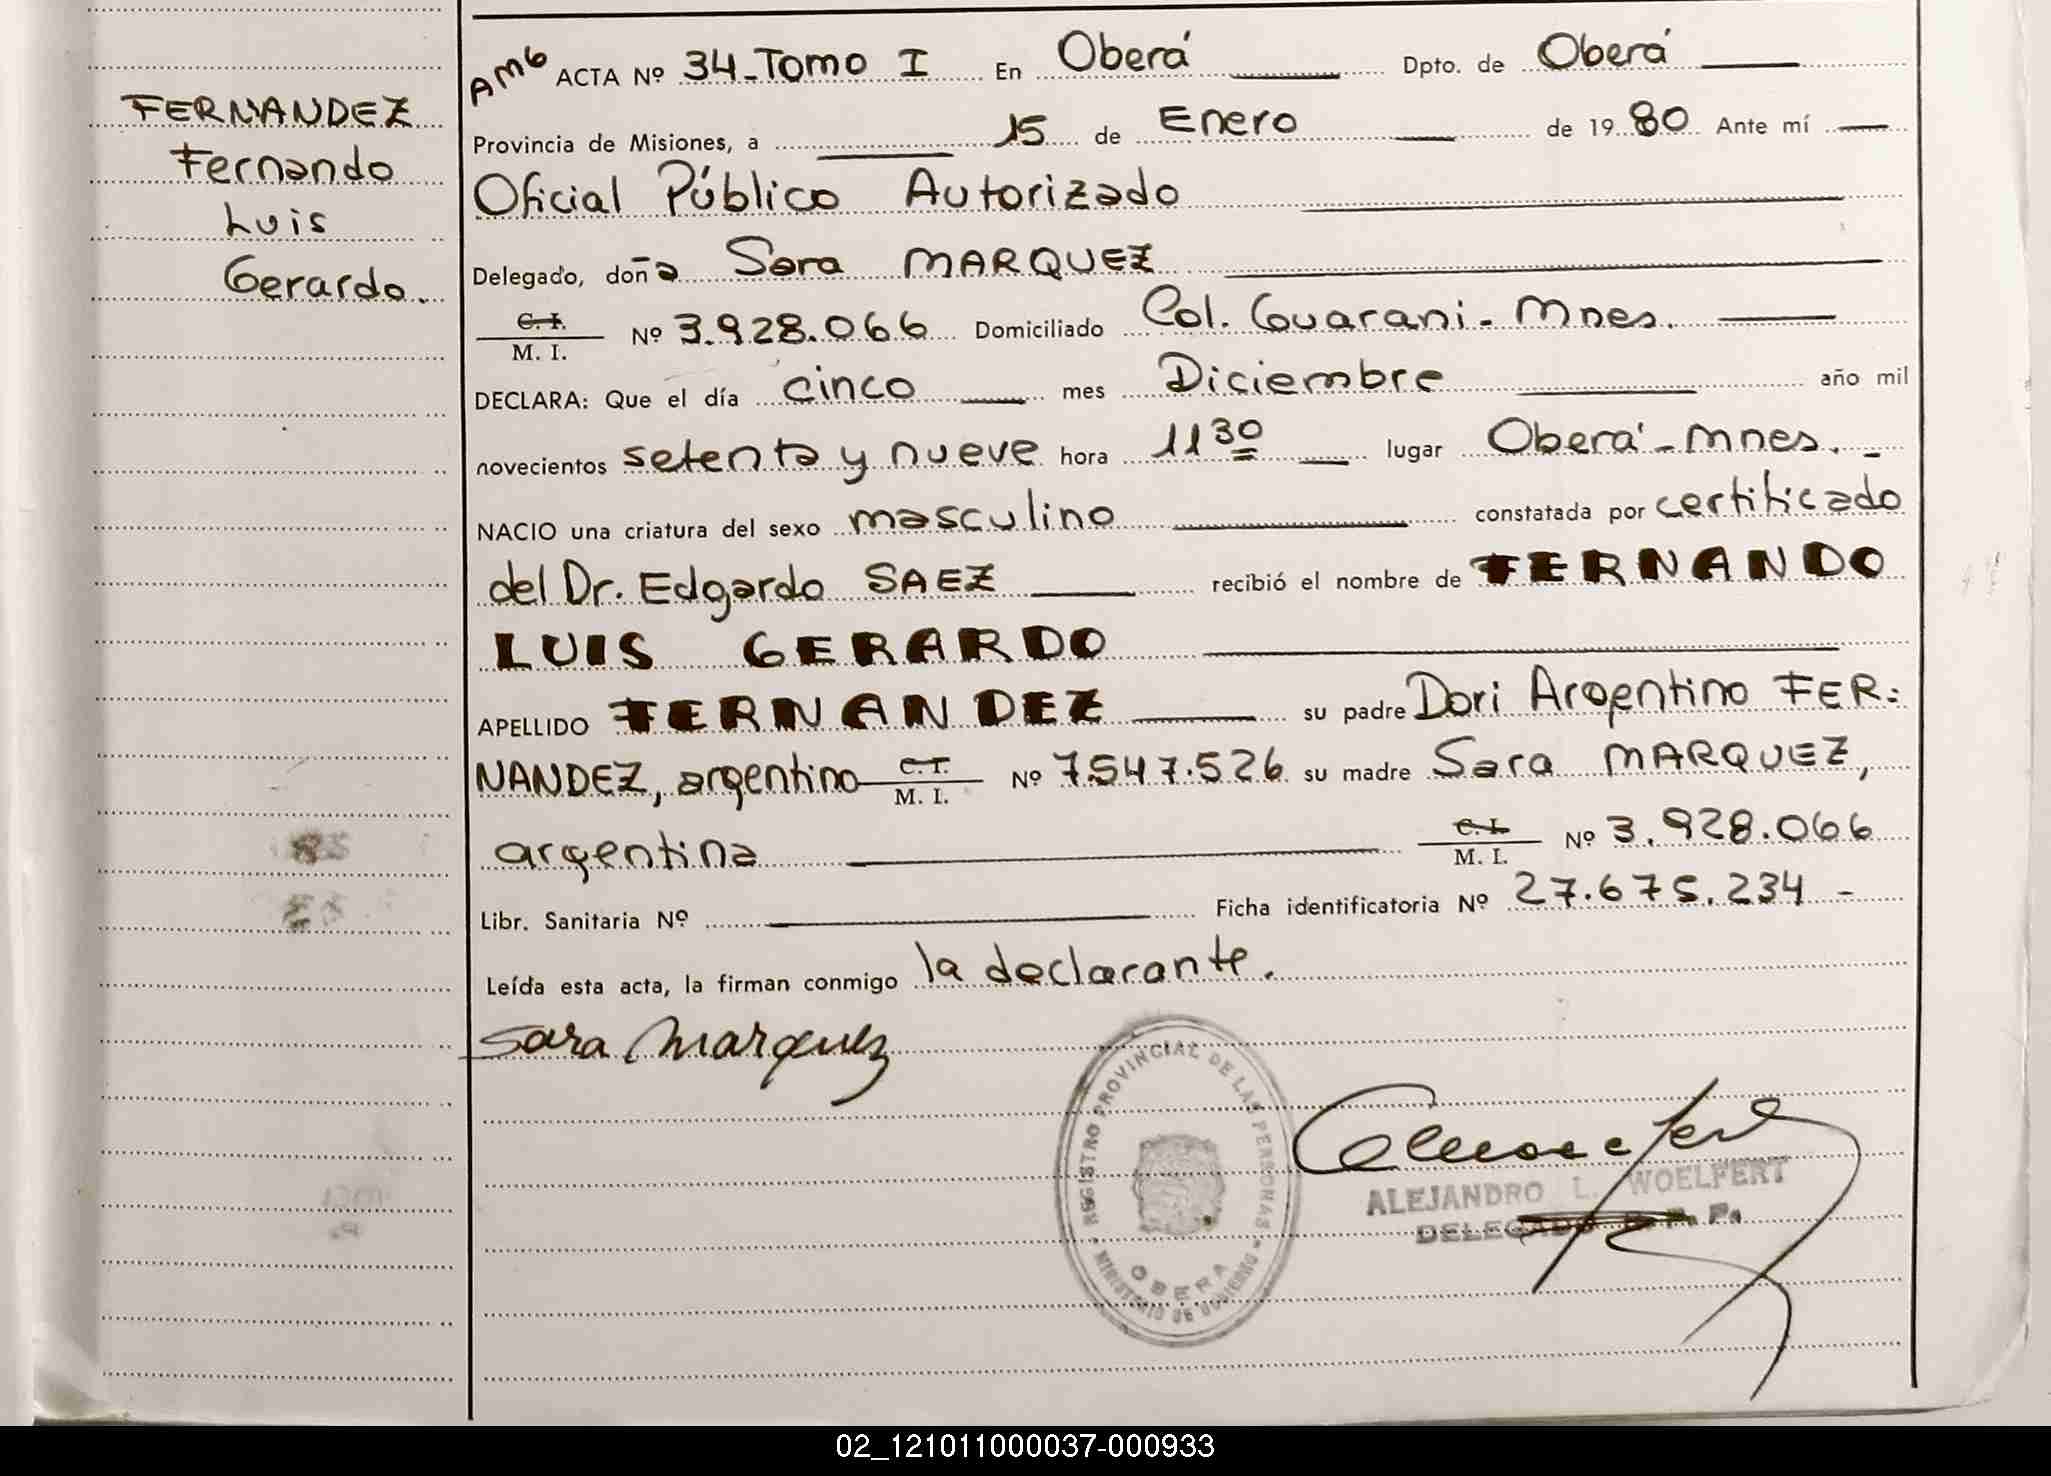 FERNANDEZ
Fernando
Luis
Gerardo.
AMG ACTA Nº 34-Tomo I En Oberá Dpto. de Oberá
Provincia de Misiones, a 15 de Enero de 1980 Ante mí
Oficial Público Autorizado
Delegado, doña Sara MARQUEZ
C. I.
M. I. Nº 3.928.066 Domiciliado Col. Guarani - Mnes.
DECLARA: Que el día cinco mes Diciembre año mil
novecientos setenta y nueve hora 11 30 lugar Oberá - Mnes.
NACIO una criatura del sexo masculino constatada por certificado
del Dr. Edgardo SAEZ recibió el nombre de FERNANDO
LUIS GERARDO
APELLIDO FERNANDEZ su padre Dori Argentino FER:
NANDEZ, argentino C. I. M. I. Nº 7.547.526 su madre Sara MARQUEZ,
argentina C. I. M. I. Nº 3.928.066
Libr. Sanitaria Nº Ficha identificatoria Nº 27.675.234 -
Leída esta acta, la firman conmigo la declarante.
Sara Marquez
REGISTRO PROVINCIAL DE LAS PERSONAS
MINISTERIO DE GOBIERNO
OBERA
ALEJANDRO L. WOELFERT
DELEGADO R. P. P.
02_121011000037-000933